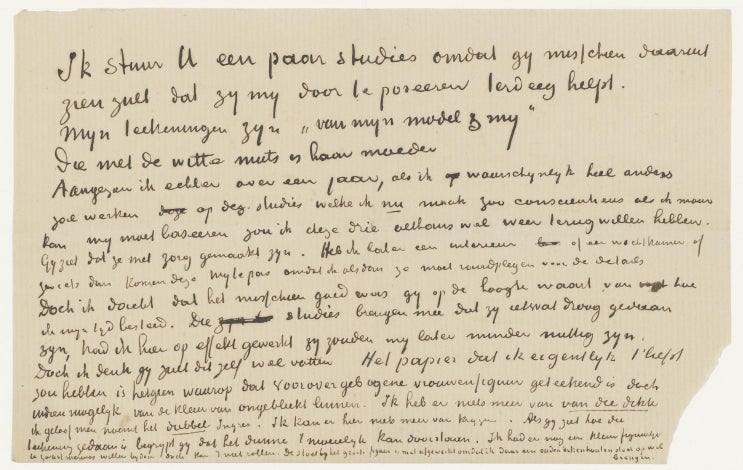 Ik stuur U een paar studies omdat gy misschien daaruit
zien zult dat zy my door te poseeren terdeeg helpt.
Myn teekeningen zyn „van myn model & my”
Die met de witte muts is haar moeder
Aangezien ik echter over een jaar, als ik waarschynlyk heel anders
zal werken op deze studies welke ik nu maak zoo consciencieus als ik maar
kan my moet baseeren zou ik deze drie althans wel weer terug willen hebben.
Gy ziet dat ze met zorg gemaakt zyn. Heb ik later een interieur of een wachtkamer of
zoo iets dan komen deze my te pas omdat ik alsdan ze moet raadplegen voor de details
Doch ik dacht dat het misschien goed was gy op de hoogte waart van hoe
ik myn tyd besteed. Die studies brengen mee dat zy ietwat droog gedaan
zyn, had ik hier op effekt gewerkt zy zouden my later minder nuttig zyn.
Doch ik denk gy zult dit zelf wel vatten Het papier dat ik eigentlyk 't liefst
zou hebben is hetgeen waarop dat voorovergebogene vrouwenfiguur geteekend is doch
indien mogelyk van de kleur van ongebleekt linnen. Ik heb er niets meer van van die dikte
ik geloof men noemt het dubbel Ingres. Ik kan er hier niets meer van krygen. Als gy ziet hoe die
teekening gedaan is begrypt gy dat het dunne 't moeielyk kan doorstaan. Ik had er nog een klein figuurtje
in zwart merinos willen bydoen doch kan 't niet rollen. De stoel by het groote figuur is niet afgewerkt omdat ik daar een ouden eikenhouten stoel op wil
brengen.